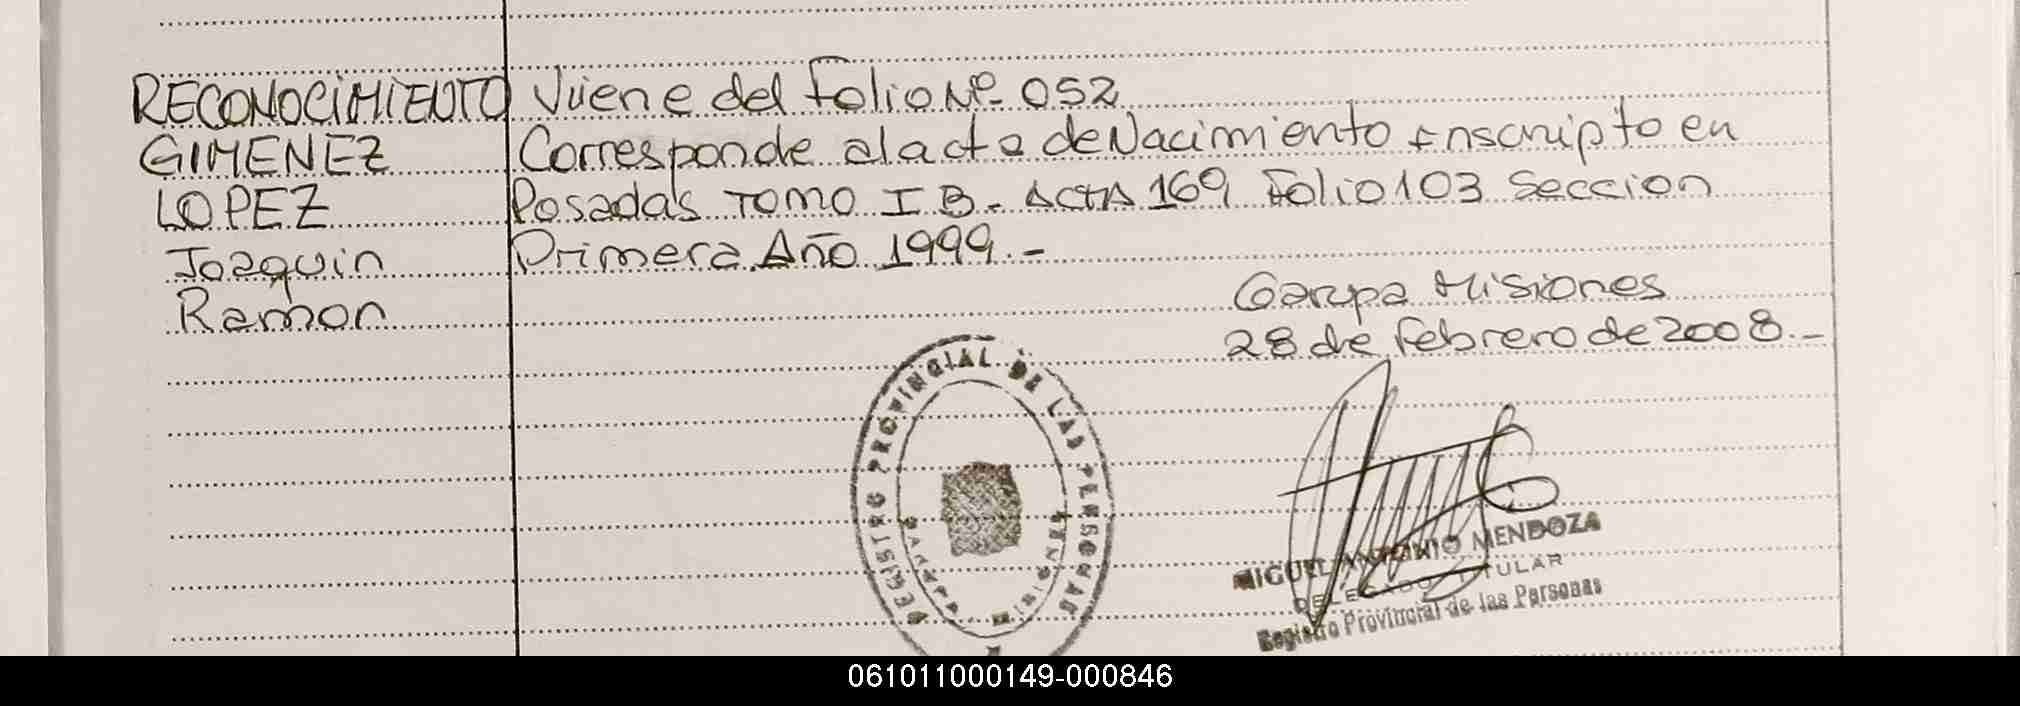 RECONOCIMIENTO Viene del Folio Nº 052
GIMENEZ Corresponde al acta de Nacimiento Inscripto en
LOPEZ Posadas TOMO I B - ACTA 169 Folio 103 Seccion
Joaquin Primera Año 1999.-
Ramon
Garupa Misiones
28 de Febrero de 2008.-
REGISTRO PROVINCIAL DE LAS PERSONAS
GARUPA MISIONES
MIGUEL ANTONIO MENDOZA
DELEGADO TITULAR
Registro Provincial de las Personas
061011000149-000846